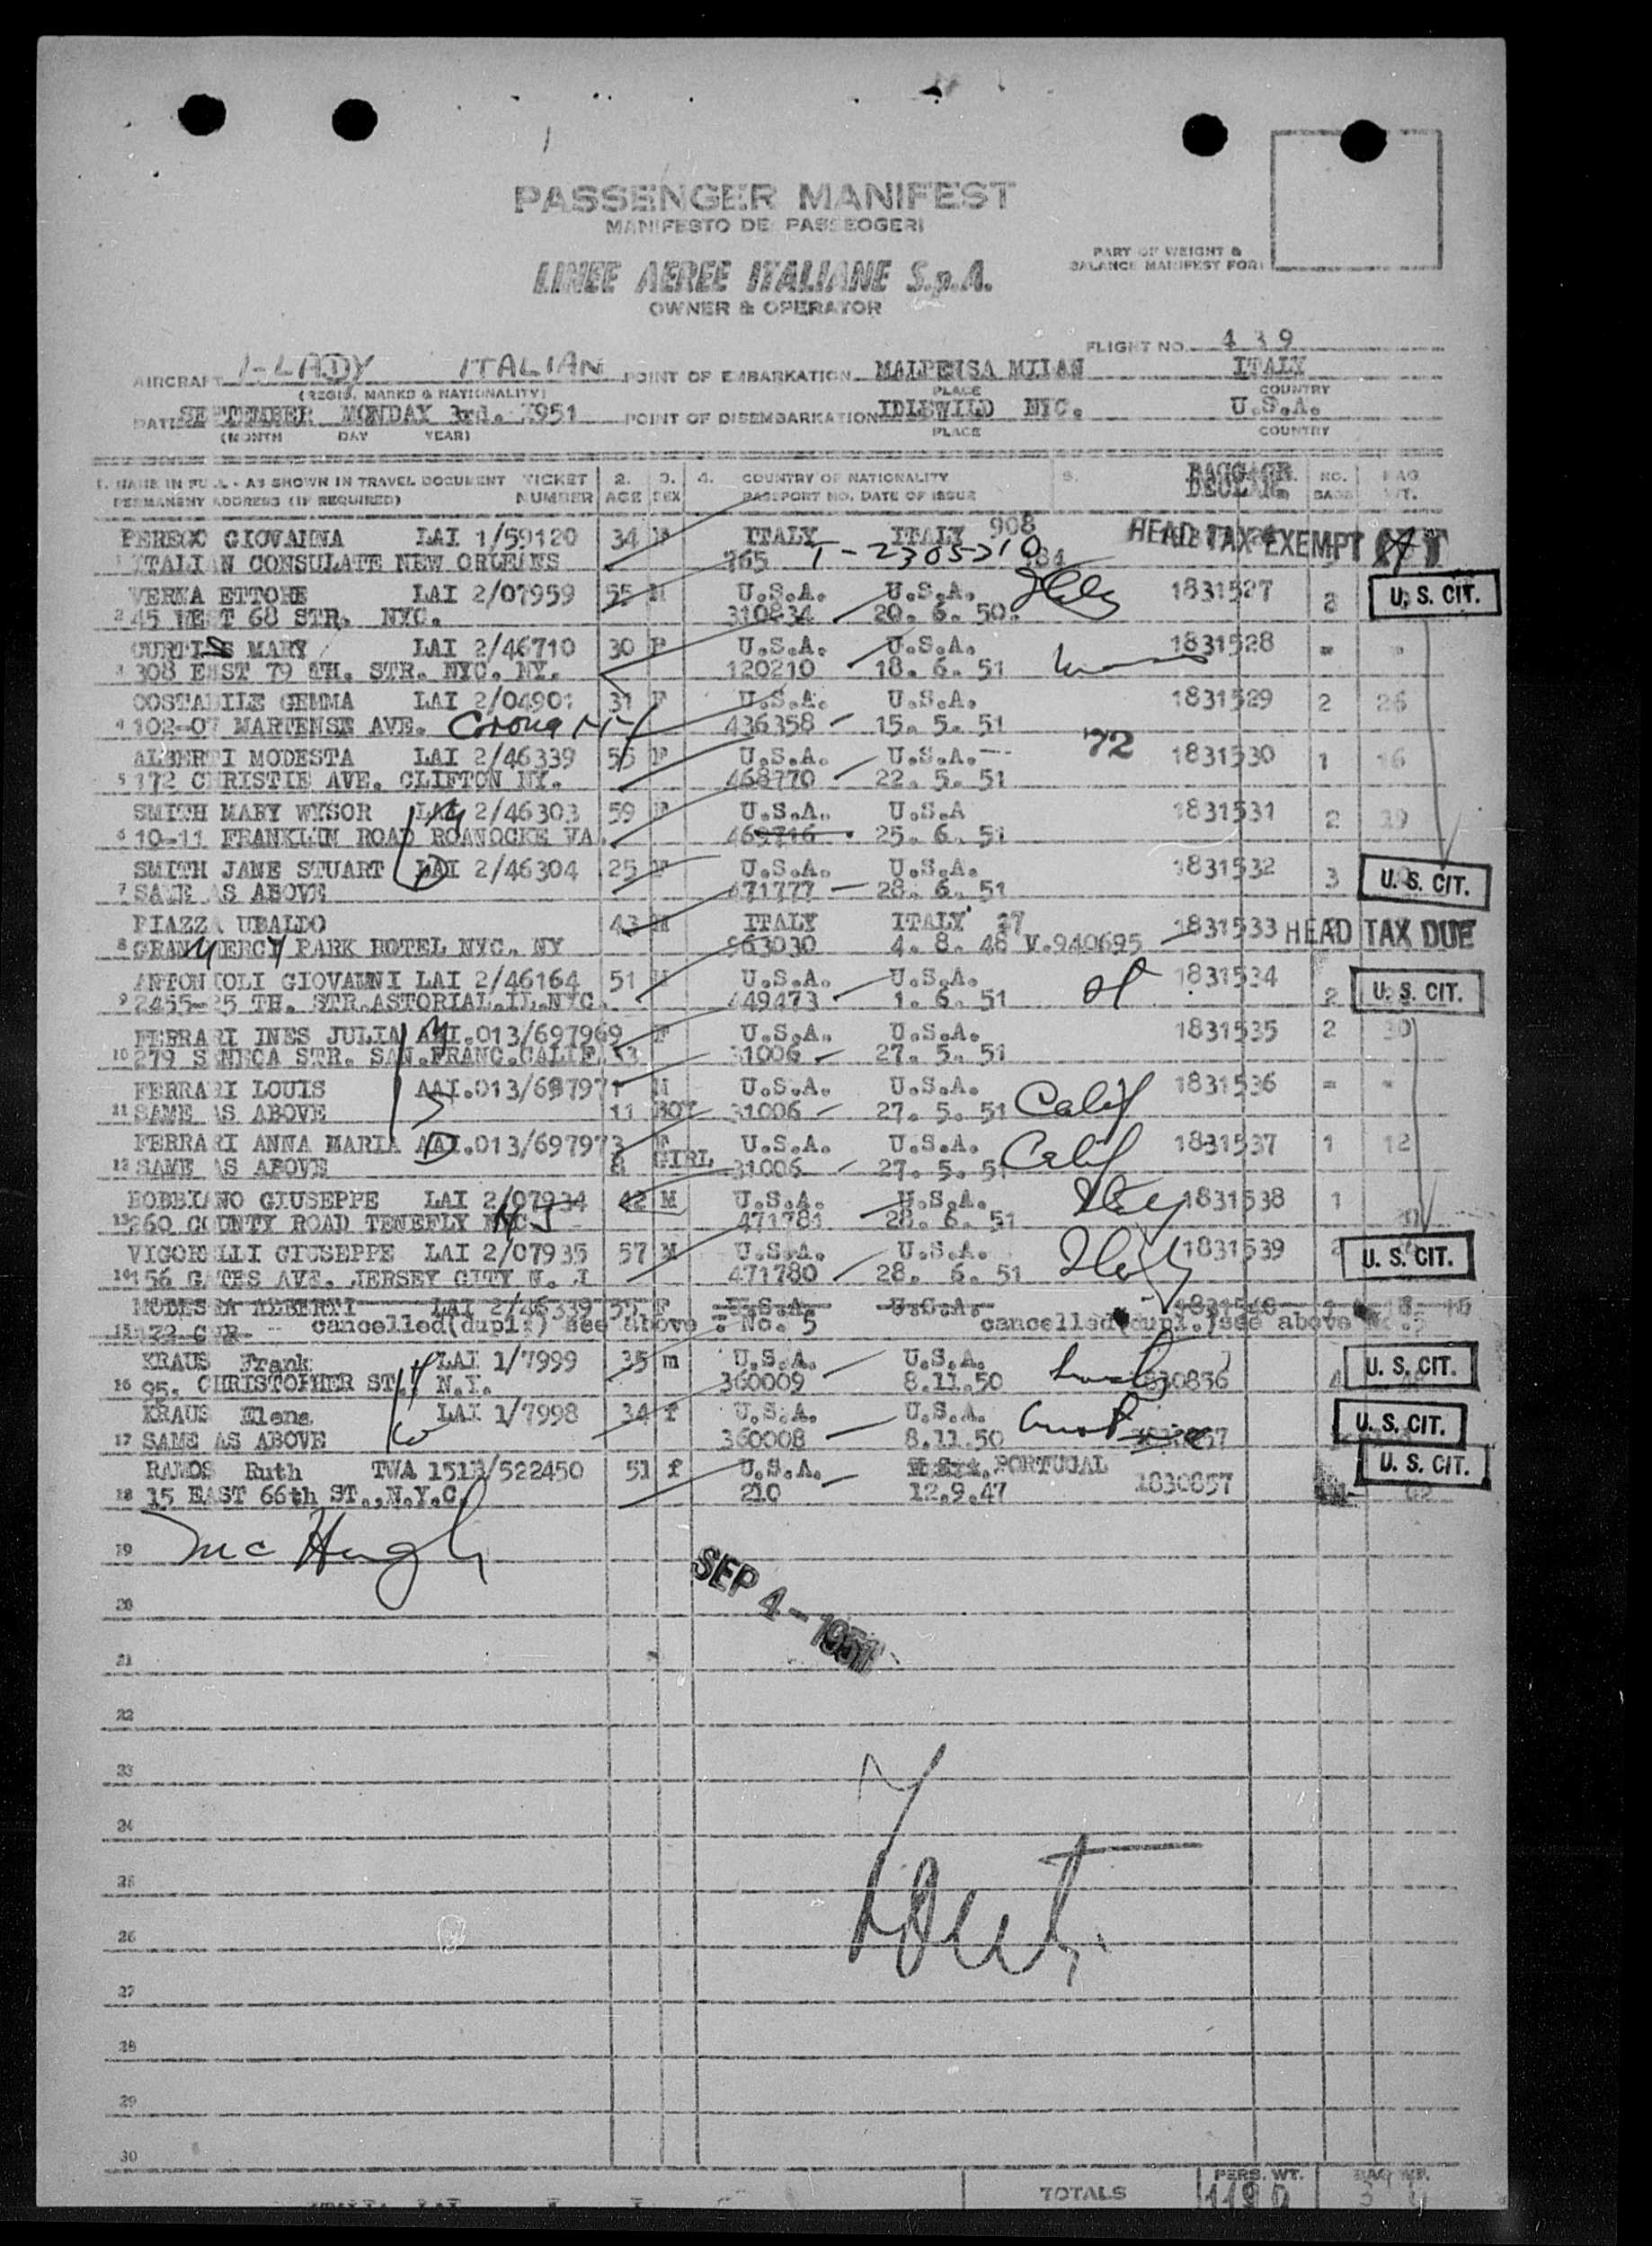 PASSENGER MANIFEST
MANIFESTO DEI PASSEGGERI
PART OF WEIGHT &
BALANCE MANIFEST FOR:
LINEE AEREE ITALIANE S.p.A.
OWNER & OPERATOR
FLIGHT NO. 439
AIRCRAFT I-LADY ITALIAN POINT OF EMBARKATION MALPENSA MILAN ITALY
(REGIS. MARKS & NATIONALITY) PLACE COUNTRY
DATE SEPTEMBER MONDAY 3rd. 1951 POINT OF DISEMBARKATION IDLEWILD NYC. U.S.A.
(MONTH DAY YEAR) PLACE COUNTRY
1. NAME IN FULL - AS SHOWN IN TRAVEL DOCUMENT TICKET 2. 3. 4. COUNTRY OF NATIONALITY 5. BAGGAGE NO. BAG
PERMANENT ADDRESS (IF REQUIRED) NUMBER AGE SEX PASSPORT NO. DATE OF ISSUE DECLAR. BAGS WT.
GIOVANNA LAI 1/59120 34 F ITALY ITALY 908 HEAD TAX EXEMPT
ITALIAN CONSULATE NEW ORLEANS 765 T-2305310
VERNA ETTORE LAI 2/07959 55 M U.S.A. U.S.A. Italy 1831527 2 U. S. CIT.
2 45 WEST 68 STR. NYC. 310834 20. 6. 50.
CURTISS MARY LAI 2/46710 30 F U.S.A. U.S.A. 1831528 = =
3 308 EAST 79 TH. STR. NYC. NY. 120210 18. 6. 51
COSTABILE GEMMA LAI 2/04901 31 F U.S.A. U.S.A. 1831529 2 26
4 102-07 MARTENSE AVE. Corona NY 436358 15. 5. 51
ALBERTI MODESTA LAI 2/46339 55 F U.S.A. U.S.A. 72 1831530 1 16
5 172 CHRISTIE AVE. CLIFTON NY. 468770 22. 5. 51
SMITH MARY WYSOR LAI 2/46303 59 F U.S.A. U.S.A 1831531 2
6 10-11 FRANKLIN ROAD ROANOCKE VA. 469716 25. 6. 51
SMITH JANE STUART LAI 2/46304 25 F U.S.A. U.S.A. 1831532 3 U. S. CIT.
7 SAME AS ABOVE 471777 28. 6. 51
PIAZZA UBALDO 43 M ITALY ITALY 27 1831533 HEAD TAX DUE
8 GRAMMERCY PARK HOTEL NYC. NY 963030 4. 8. 48 V.940695
ANTONIOLI GIOVANNI LAI 2/46164 51 M U.S.A. U.S.A. 1831534 2 U. S. CIT.
9 2455-25 TH. STR.ASTORIAL.IL.NYC. 449473 1. 6. 51
FERRARI INES JULIA AAI.013/697969 F U.S.A. U.S.A. 1831535 2 30
10 279 SENECA STR. SAN.FRANC.CALIF. 33 31006 27. 5. 51
FERRARI LOUIS AAI.013/697971 M U.S.A. U.S.A. 1831536 = =
11 SAME AS ABOVE 11 BOY 31006 27. 5. 51 Calif
FERRARI ANNA MARIA AAI.013/697973 F U.S.A. U.S.A. 1831537 1 12
12 SAME AS ABOVE GIRL 31006 27. 5. 51 Calif
BOBBIANO GIUSEPPE LAI 2/07934 42 M U.S.A. U.S.A. Italy 1831538 1
13 260 COUNTY ROAD TENEFLY NJ 471781 28. 6. 51
VIGORELLI GIUSEPPE LAI 2/07935 57 M U.S.A. U.S.A. Italy 1831539 2 U. S. CIT.
14 156 GATES AVE. JERSEY CITY N. J 471780 28. 6. 51
MODESTA ALBERTI LAI 2/46339 55 F U.S.A. U.S.A. 1831540 1 16
15 172 CHR cancelled(dupl.) see above : No. 5 cancelled(dupl.)see above No. 5
KRAUS Frank LAI 1/7999 35 m U.S.A. U.S.A. U. S. CIT.
16 95. CHRISTOPHER ST., N.Y. 360009 8.11.50 1830856 4
KRAUS Elena LAI 1/7998 34 f U.S.A. U.S.A. U. S. CIT.
17 SAME AS ABOVE 360008 8.11.50
RAMOS Ruth TWA 151B/522450 51 f U.S.A. PORTUGAL U. S. CIT.
18 15 EAST 66th ST.,N.Y.C. 210 12.9.47 1830857 62
19 McHugh
SEP 4 - 1951
20
21
22
23
24
25
26
27
28
29
30
PERS. WT. BAG WT.
TOTALS 1190